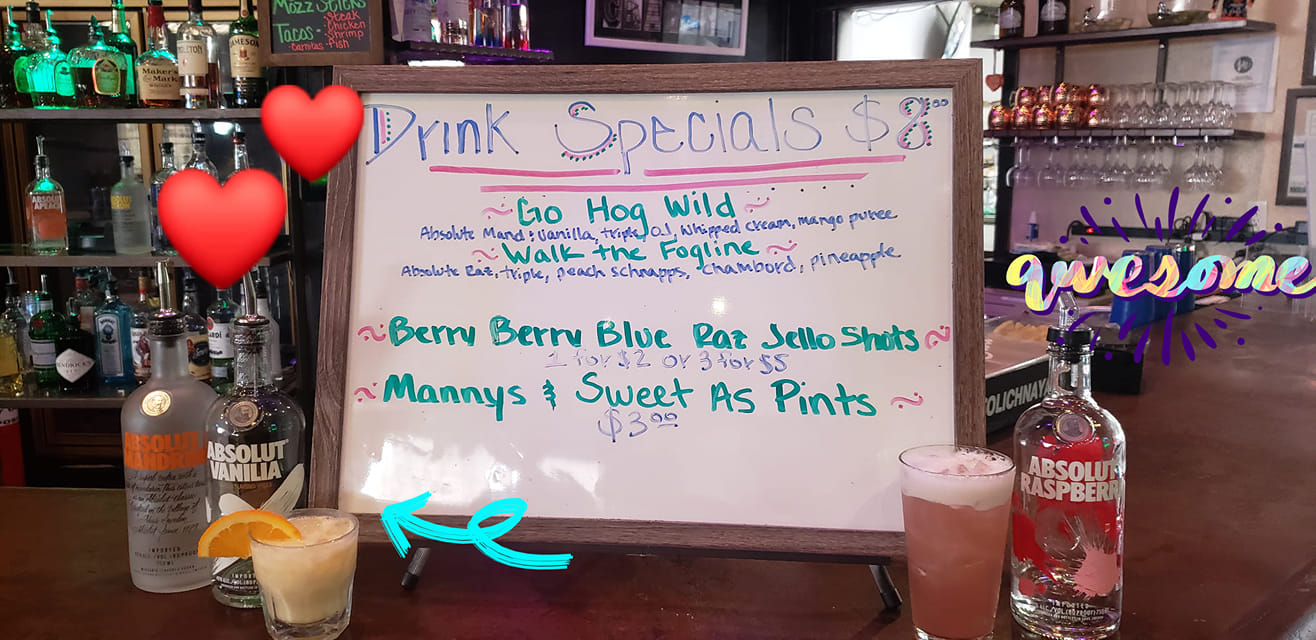 Mozz Sticks
Tacos - Steak
Chicken
Shrimp
Carnitas - Fish
JAMESON
Maker's
Mark
Drink Specials $8.00
~ Go Hog Wild ~
Absolute Mand; Vanilla, triple, OJ, Whipped cream, mango puree
~ Walk the Fogline ~
Absolute Raz, triple, peach schnapps, chambord, pineapple
~ Berry Berry Blue Raz Jello Shots ~
1 for $2 or 3 for $5
~ Mannys & Sweet As Pints ~
$3.00
awesome
OLICHNAYA
ABSOLUT
MANDRIN
ABSOLUT
VANILIA
ABSOLUT
RASPBERRI
IMPORTED
HENDRICK'S